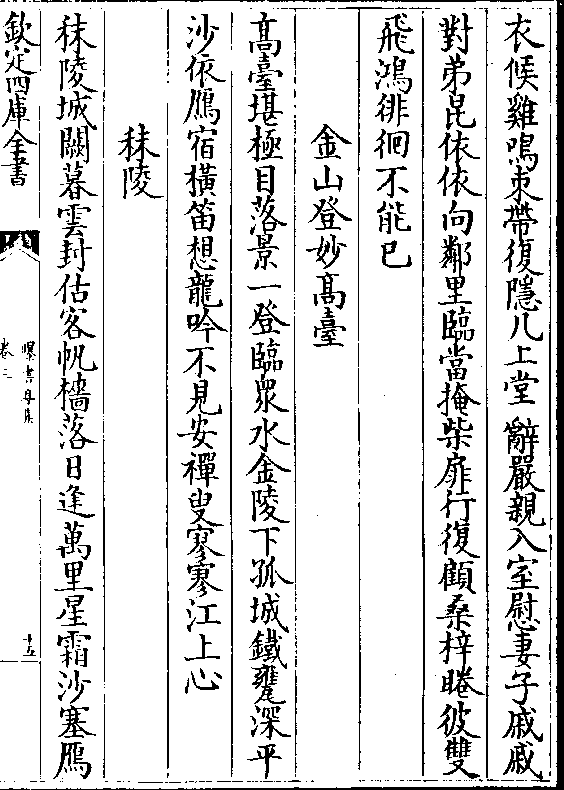 衣候雞鳴束帶復隱几上堂辭嚴親入室慰妻子戚戚
對弟昆依依向鄰里臨當掩柴扉行復顧桑梓睠彼雙
飛鴻徘徊不能已
金山登妙髙臺
髙臺堪極目落景一登臨衆水金陵下孤城鐵甕深平
沙依鴈宿橫笛想龍吟不見安禪叟寥寥江上心
秣陵
秣陵城闕暮雲封估客帆檣落日逢萬里星霜沙塞鴈
欽定四庫全書
曝書亭集
卷三
十五